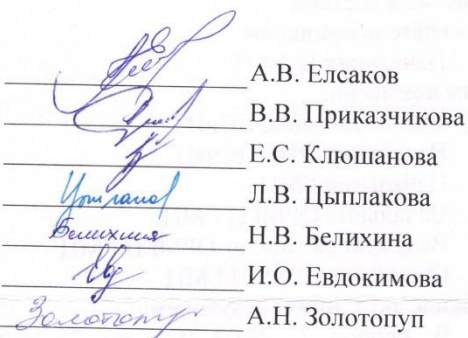 А.В. Елсаков
В.В. Приказчикова
Е.С. Клюшанова
Л.В. Цыплакова
Белихина Н.В. Белихина
И.О. Евдокимова
Золотопуп А.Н. Золотопуп